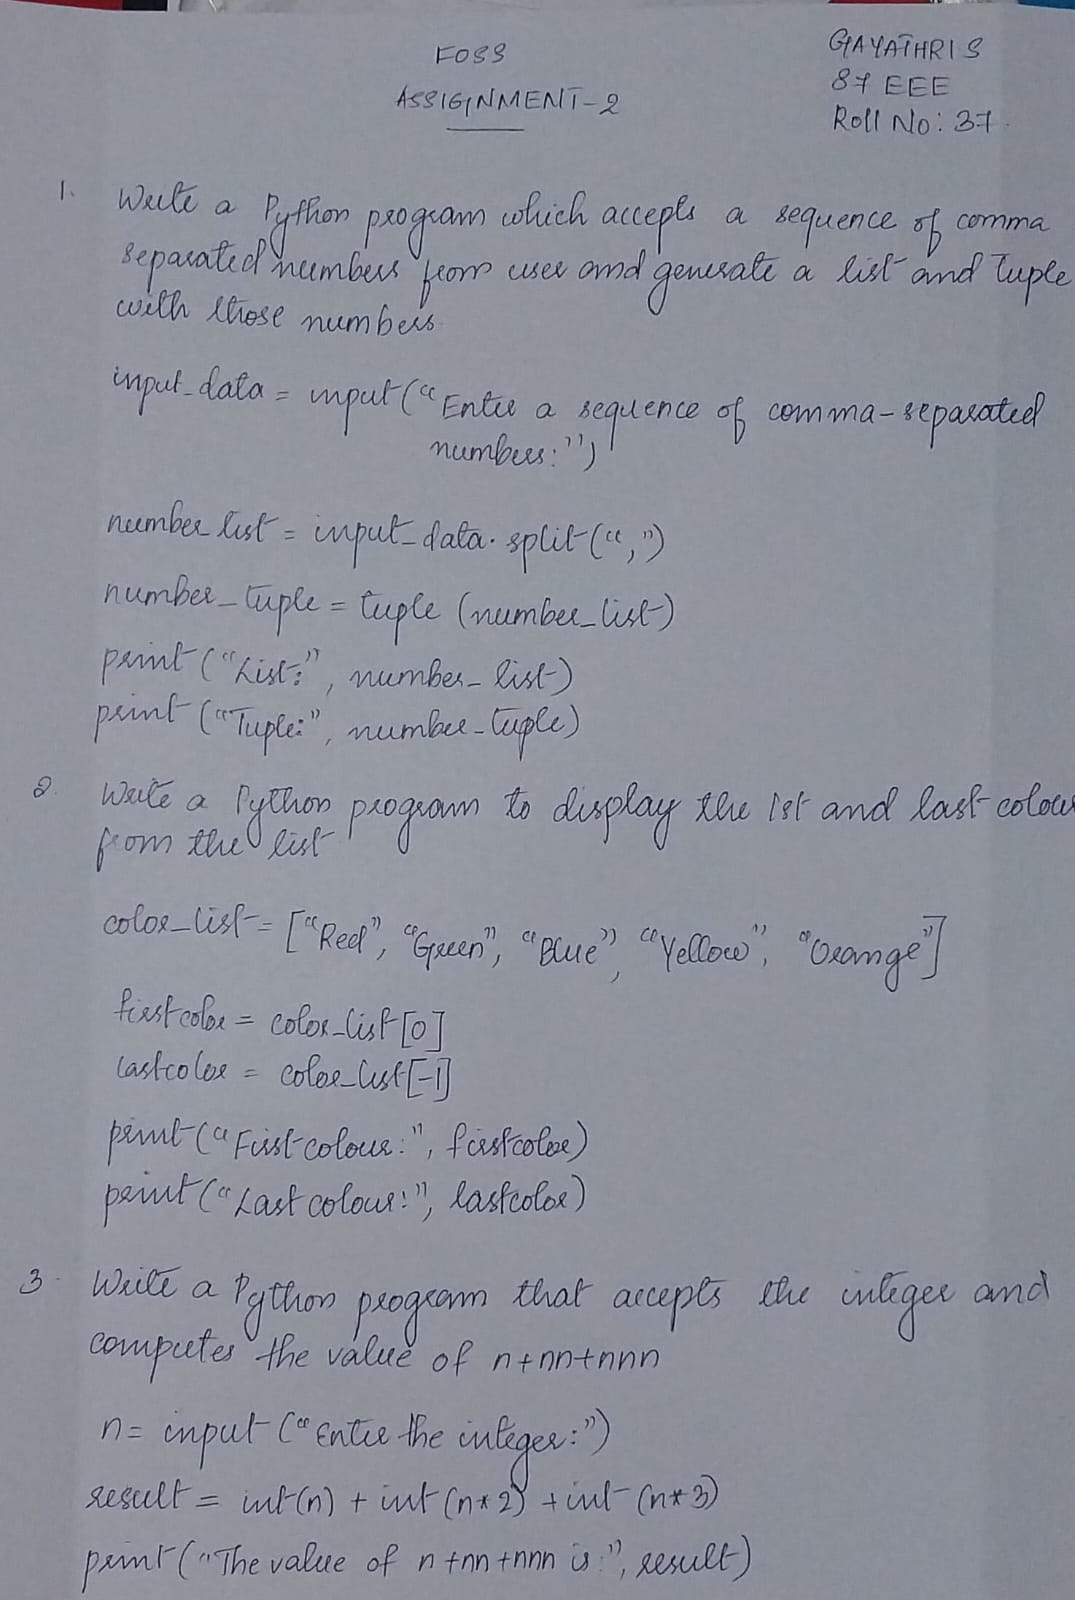 FOSS
ASSIGNMENT-2
GAYATHRI S
S7 EEE
Roll No: 37.
1. Write a Python program which accepts a sequence of comma
separated numbers from user and generate a list and tuple
with those numbers.
input_data = input("Enter a sequence of comma-separated
numbers:")
number_list = input_data.split(",")
number_tuple = tuple (number_list)
print ("List:", number_list)
print ("Tuple:", number_tuple)
2. Write a Python program to display the 1st and last colour
from the list
color_list = ["Red", "Green", "Blue", "Yellow", "Orange"]
firstcolor = color_list[0]
lastcolor = color_list[-1]
print("First colour:", firstcolor)
print("Last colour:", lastcolor)
3. Write a Python program that accepts the integer and
computes the value of n+nn+nnn
n = input ("Enter the integer:")
result = int(n) + int (n*2) + int (n*3)
print("The value of n+nn+nnn is:", result)